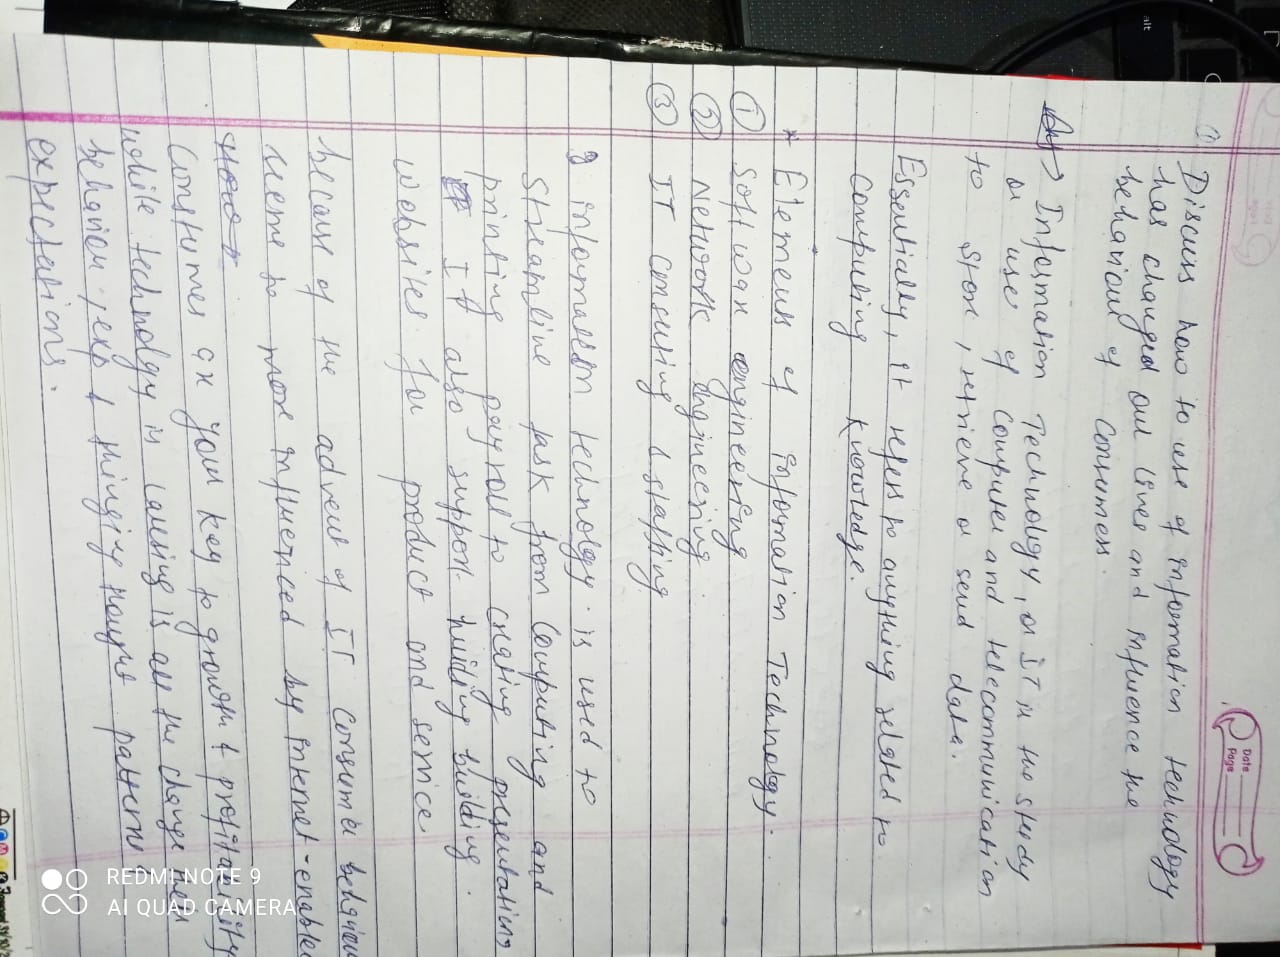 Date
Page
① Discuss how to use of information technology
has changed our lives and influence the
behaviour of consumers.
Ans → Information Technology, or IT is the study
or use of computer and telecommunication
to store, retrieve or send data.
Essentially, it refers to anything related to
computing knowledge.
* Elements of information Technology.
① Software engineering
② Network engineering.
③ IT consulting & staffing
information technology. is used to
streamline task from computing and
printing payroll to creating presentations
It also support. building building.
websites for product and service
because of the advent of IT consumer behaviour
become the more influenced by internet-enabled
consumer are your key to growth & profitability
mobile technology is causing is all the change
behaviour, exp &
expectations.
REDMI NOTE 9
AI QUAD CAMERA
alt